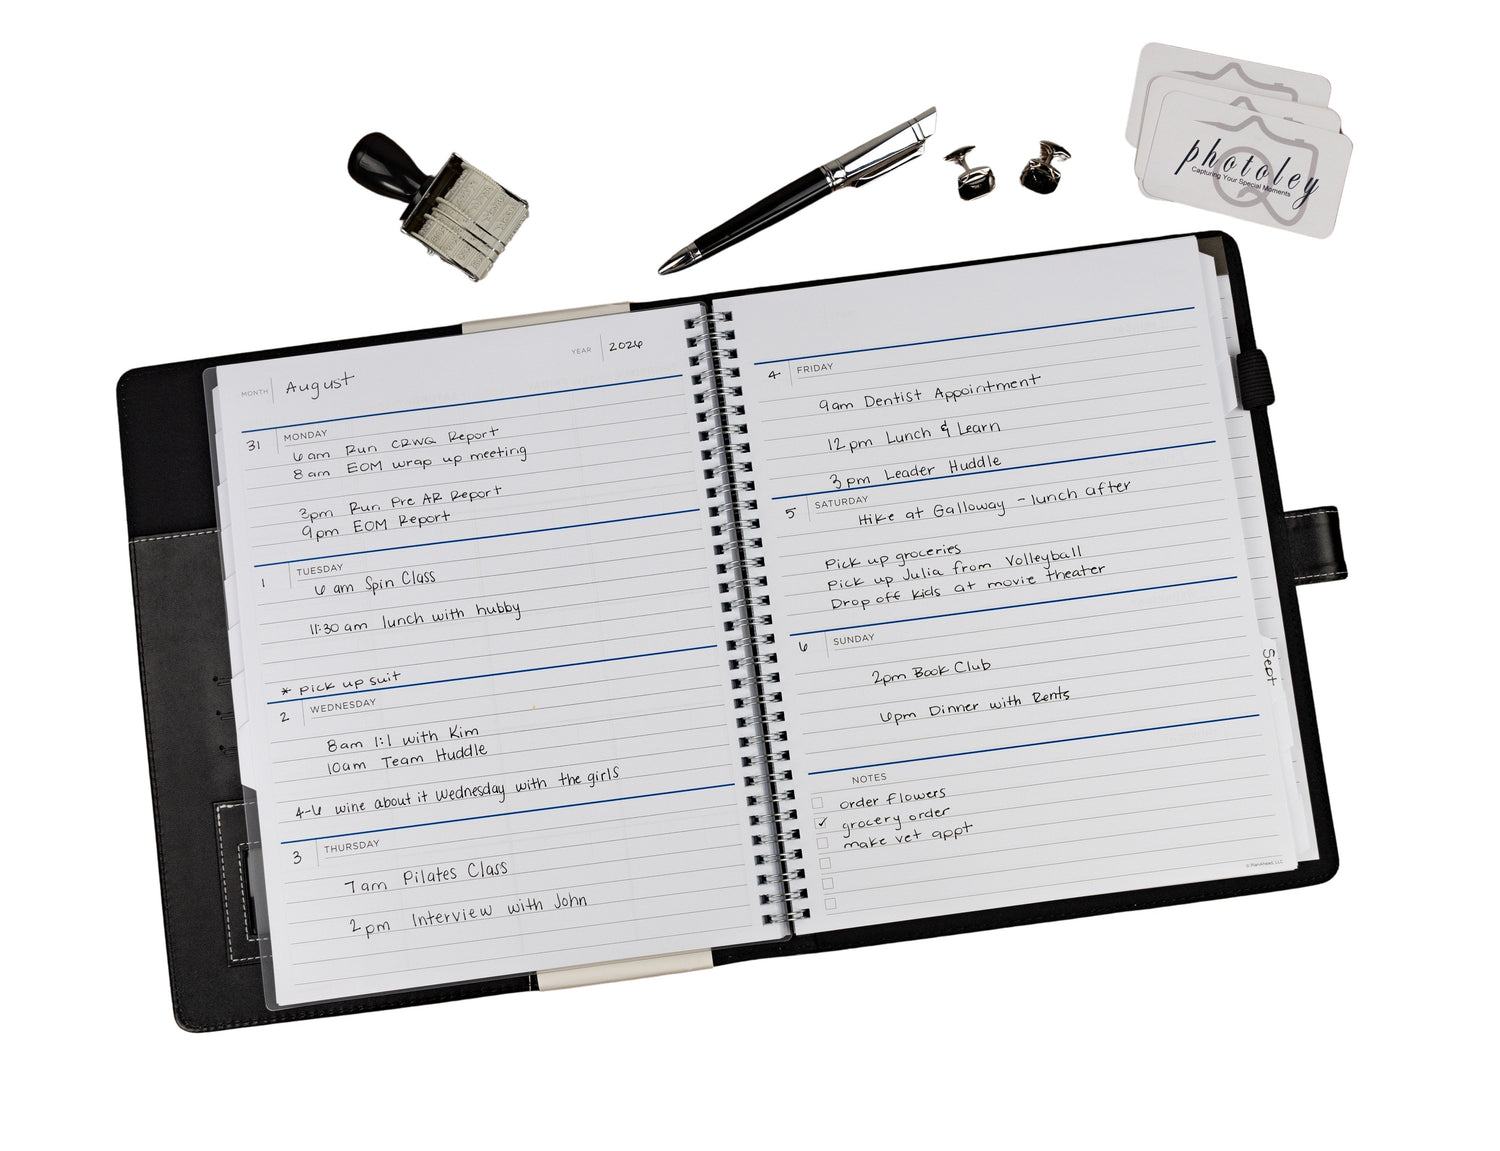 photoley
Capturing Your Special Moments
MONTH August
YEAR 2026
31 MONDAY
6am Run CRWQ Report
8am EOM wrap up meeting
3pm Run Pre AR Report
9pm EOM Report
1 TUESDAY
6am Spin Class
11:30am lunch with hubby
* pick up suit
2 WEDNESDAY
8am 1:1 with Kim
10am Team Huddle
4-6 wine about it Wednesday with the girls
3 THURSDAY
7am Pilates Class
2pm Interview with John
4 FRIDAY
9am Dentist Appointment
12pm Lunch & Learn
3pm Leader Huddle
5 SATURDAY
Hike at Galloway - lunch after
Pick up groceries
Pick up Julia from Volleyball
Drop off kids at movie theater
6 SUNDAY
2pm Book Club
6pm Dinner with Rents
NOTES
order flowers
✓ grocery order
make vet appt
© PlanAhead, LLC
Sept